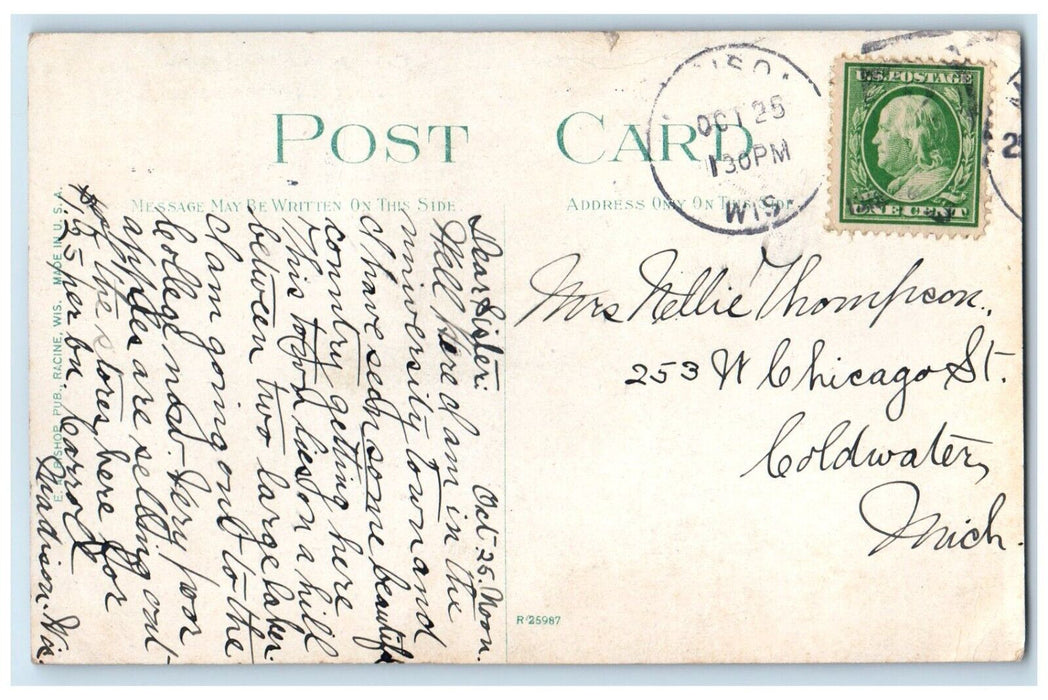 POST CARD
MESSAGE MAY BE WRITTEN ON THIS SIDE
ADDRESS ONLY ON THIS SIDE
OCT 25
130PM
WIS.
U.S. POSTAGE
ONE CENT
Oct 25. Noon.
Dear Sister:
Well Here I am in the
university town and
I have seen some beautiful
country getting here
This town lies on a hill
between two large lakes.
I am going out to the
College now. Very poor
apples are selling out
of the stores here for
1.25 per bu Carrol
Madison. Wis.
Mrs Nellie Thompson.,
253 W Chicago St.
Coldwater,
Mich.
R 25987
PUB., RACINE, WIS. MADE IN U.S.A.